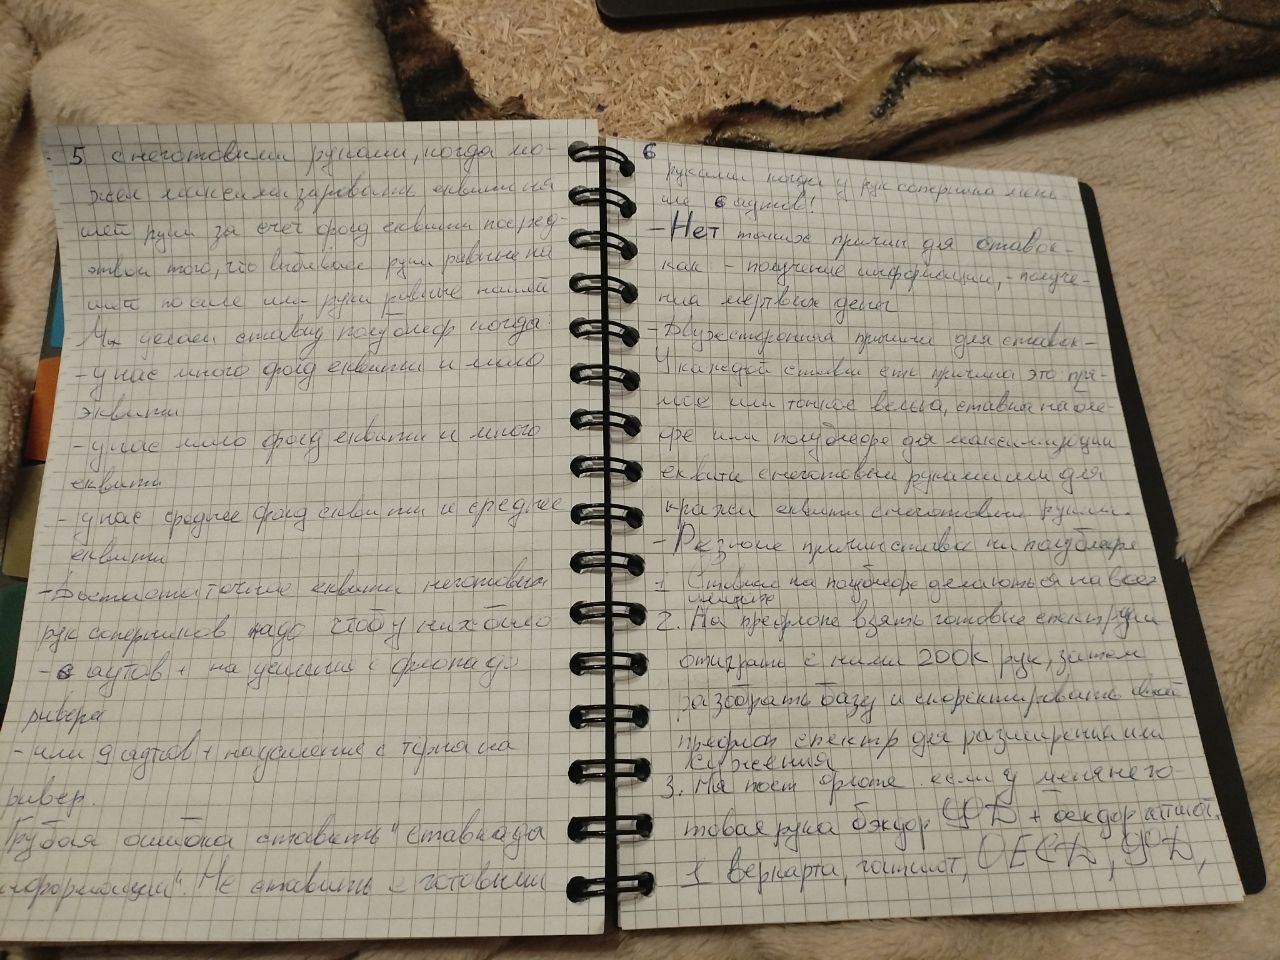 5 с неготовыми руками, когда мо-
жем максимизировать еквити на
шей руки за счет фолд еквити посред-
ством того, что выбиваем руки равные на
шей по силе или руки равные нашей
Мы делаем ставку полублеф когда:
- у нас много фолд еквити и мало
эквити
- у нас мало фолд еквити и много
еквити
- у нас среднее фолд еквити и среднее
еквити
- Достаточное еквити неготовых
рук соперников надо чтоб у них было
- 6 аутов + на усиление с флопа до
ривера
- или 9 аутов + на усиление с терна на
ривер.
Грубая ошибка ставить "ставка для
информации". Не ставить с готовыми
6
руками когда у рук соперника мень
ше 6 аутов!
- Нет таких причин для ставок -
как - получение информации, - получе-
ния мертвых денег
- Двухсторонняя причина для ставок -
У каждой ставки есть причина это пря-
мое или тонкое велью, ставки на бле-
фе или полублефе для максимизации
еквити с неготовыми руками или для
кражи еквити с неготовыми руками.
- Резюме причин ставок на полублефе
1 Ставка на полублефе делаються на всех
улицах
2. На префлопе взять готовые спектры и
отиграть с ними 200к рук, затем
разобрать базу и скоректировать свой
префлоп спектр для разширения или
сужения
3. На пост флопе если у меня него-
товая рука бэкдор ФД + бекдор гатшот,
1 веркарта, гатшот, ОЕСД, ФД,